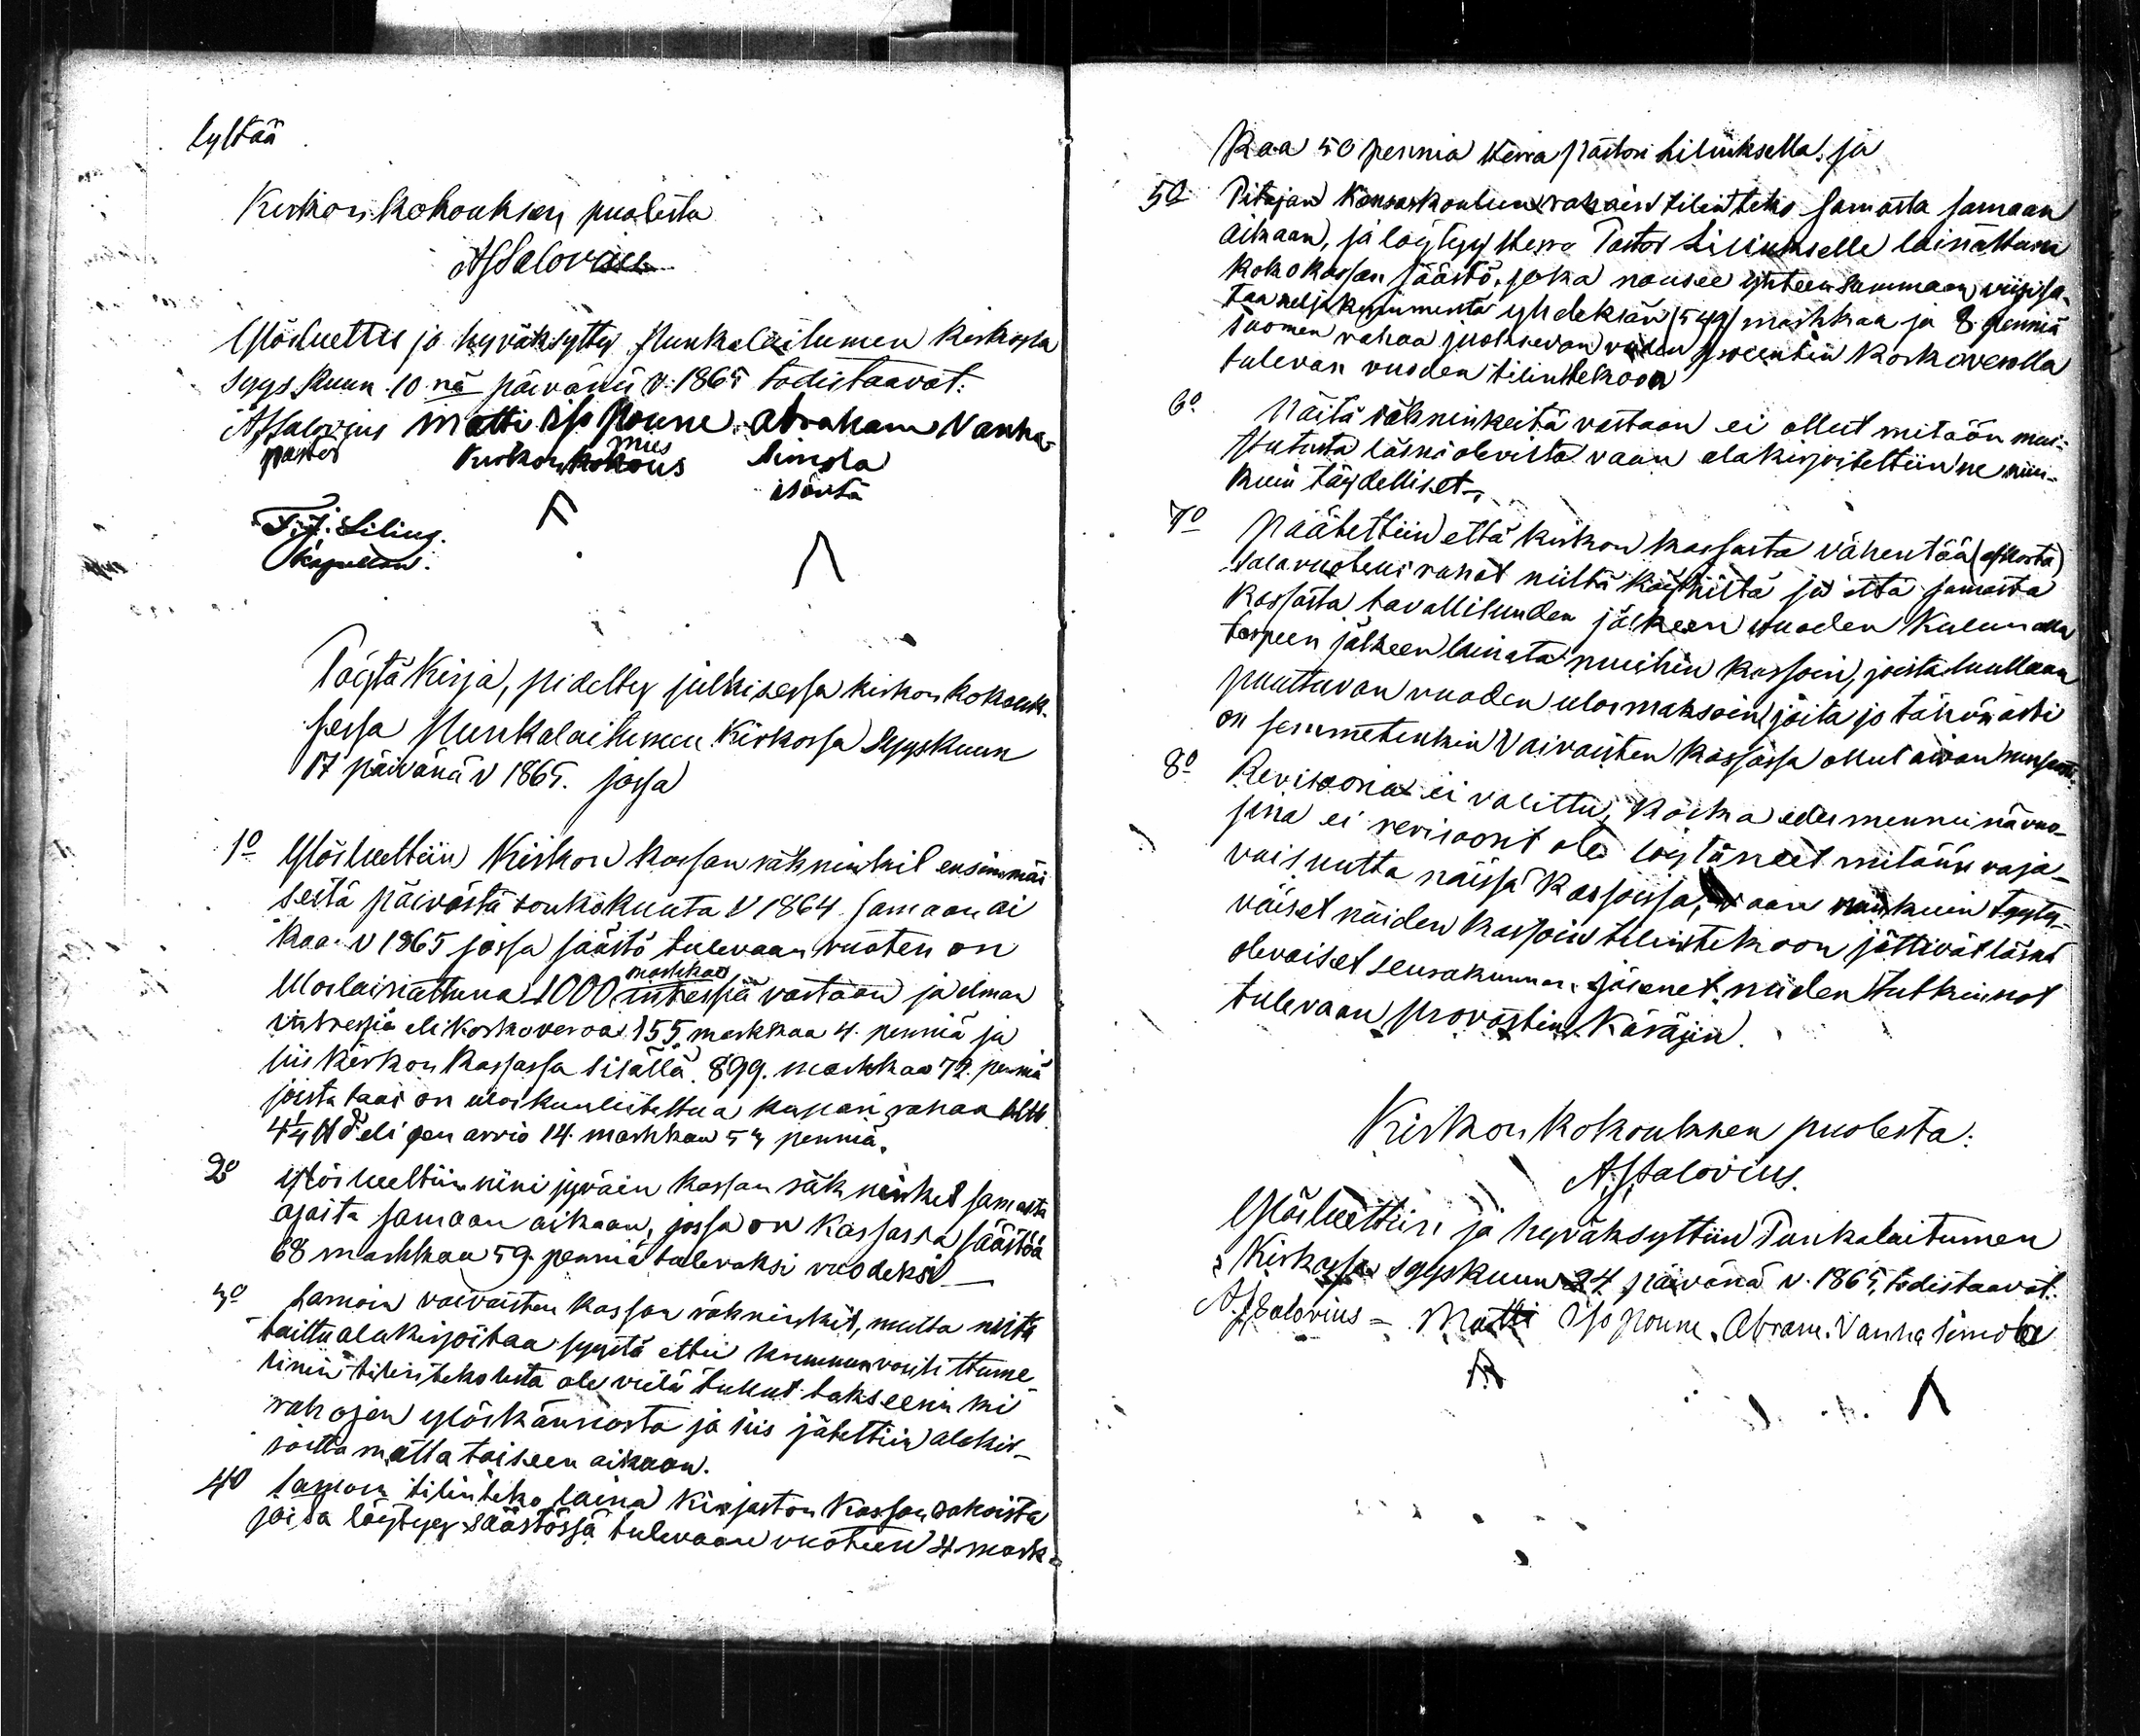 syltää
Kirkonkokouksen puolesta
A J Salovius
Ylösluettu ja hyväksytty Punkalaitumen kirkossa
syyskuun 10 nä päivänä v. 1865 todistaavat:
A J Salovius Matti Iso Poune Abraham Vanha-
pastor Kirkonkokous mies Simola
isäntä
F. J. Lilius.
Kapellan.
Pöytäkirja, pidetty julkisessa kirkonkokouk-
sessa Punkalaitumen Kirkossa Syyskuun
17 päivänä v 1865. jossa
1o Ylösluettiin Kirkon kassan räkninkit ensimmäi
sestä päivästä toukokuuta v 1864 samaan ai
kaa v 1865 jossa säästö tulevaan vuoten on
Uloslainattuna 1000 markkaa intressiä vastaan ja ilman
intressiä eli korkoveroa 155 markkaa 4 penniä ja
siis kirkon kassassa sisällä 899. markkaa 72. penniä
joista taas on uloskuuliteltua kupari rahaa
4 1/4 eli sen arvio 14. markkaa 54 penniä.
2o Ylösluettiin niini jyväin kassan räkninkit samasta
ajasta samaan aikaan, jossa on kassassa säästöä
68 markkaa 59. penniä tulevaksi vuodeksi
3o Samoin vaivaisten kassan räkninkit, mutta niitä
taittu alakirjoitaa syystä ettei kunnan valittume
himin tilintekolusta ole vielä tullut takseerinki
rahojen ylöskannosta ja siis jätettiin alakir-
joittamatta toiseen aikaan.
4o Samoin tilinteko laina kirjaston Kassan rahoista
joita löytyy säästössä tulevaan vuoteen 4 mark-
kaa 50 penniä Herra pastori Liliuksella, ja
5o Pitäjän Kansankoulun rahain tilinteko samasta samaan
aikaan, ja löytyy Herra Pastor Liliukselle lainattuna
koko kassan säästö, joka nousee yhteen summaan viisisa-
taa neljäkymmentä yhdeksän (549) markkaa ja 8 penniä
Suomen rahaa juoksevan viiden prosentin korkoverolla
tulevan vuoden tilintekoon
6o Näitä räkninkeitä vastaan ei ollut mitään mui-
stutusta läsnä olevista vaan alakirjoitettiin ne niin-
kuin täydelliset.
7o Päätettiin että kirkon kassasta vähentää (aflosta)
salavuoteus rahat niiltä köyhiltä ja että samasta
kassasta tavallisuuden jälkeen vuoden kuluessa
tarpeen jälkeen lainata muihin kassoin, joista luullaan
puuttuvan vuoden ulosmaksoin, joita jo tähän asti
on semmetenkin Vaivaisten kassassa ollut aivan runsaasti.
8o Revisooria ei valittu, koska edesmenneinä vuo-
sina ei revisoorit ole löytäneet mitään vaja-
vaisuutta näissä kassoissa, vaan niinkuin tyyty-
väiset näiden kassoin tilintekoon jättivät läsnä
olevaiset seurakunnan jäsenet niiden tutkinnot
tulevaan provastin Käräjin.
Kirkon kokouksen puolesta:
A J Salovius.
Ylösluettiin ja hyväksyttiin Punkalaitumen
Kirkossa syyskuun 24 päivänä v. 1865, todistaavat:
A J Salovius - Matti Iso Poune. Abram. Vanha Simola